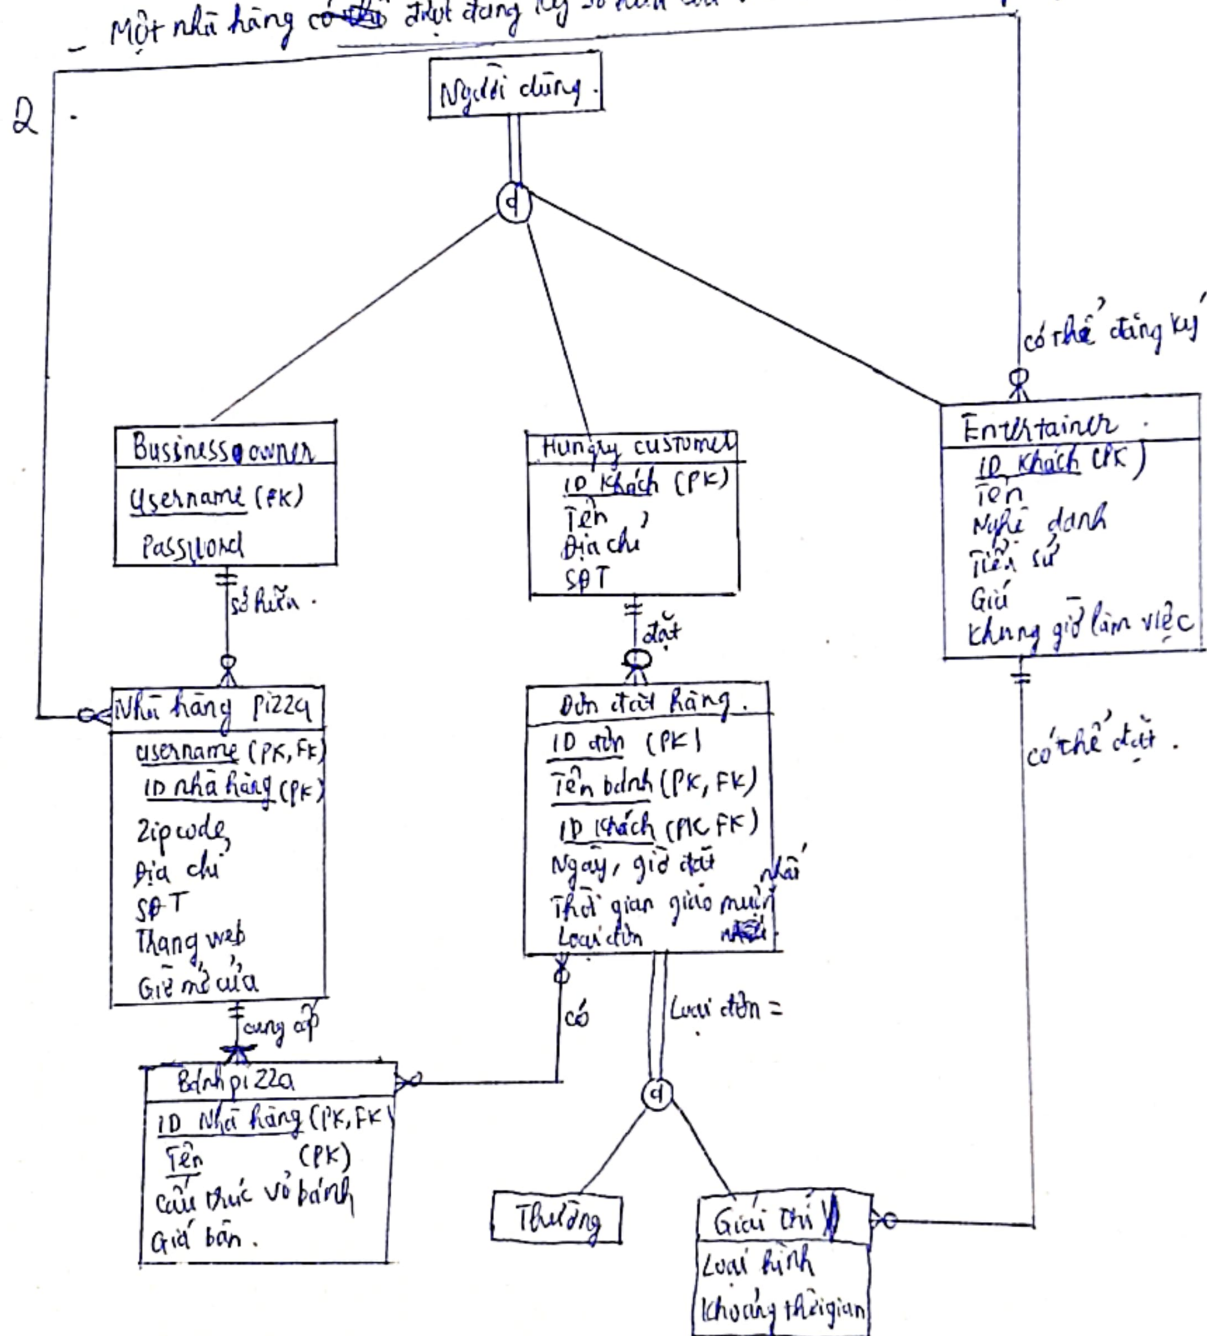 - Một nhà hàng có được đăng ký
2.
Người dùng.
d
có thể đăng ký
Bussiness owner
Username (PK)
Password
sở hữu.
Hungry customer
ID khách (PK)
Tên
Địa chỉ
SĐT
đặt
Entertainer
ID khách (PK)
Tên
Nghệ danh
Tiểu sử
Giá
Khung giờ làm việc
có thể đặt.
Nhà hàng pizza
username (PK, FK)
ID nhà hàng (PK)
Zipcode,
Địa chỉ
SĐT
Thang web
Giờ mở cửa
cung cấp
Đơn đặt hàng.
ID đơn (PK)
Tên bánh (PK, FK)
ID khách (PK FK)
Ngày, giờ đặt
Thời gian giao muộn nhất
Loại đơn
có
Loại đơn =
d
Bánh pizza
ID Nhà hàng (PK, FK)
Tên (PK)
Cấu trúc vỏ bánh
Giá bán.
Thường
Giải trí
Loại hình
Khoảng thời gian